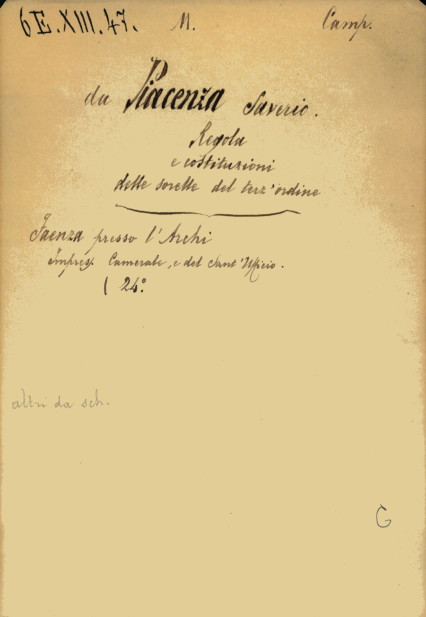 6E.XIII.47. M. Camp.
da Piacenza Saverio.
Regola
e costituzioni
delle sorelle del terz'ordine
Faenza presso l'Archi
Impres. Camerale, e del Sant'Uficio.
( 24°.
altri da sch.
G